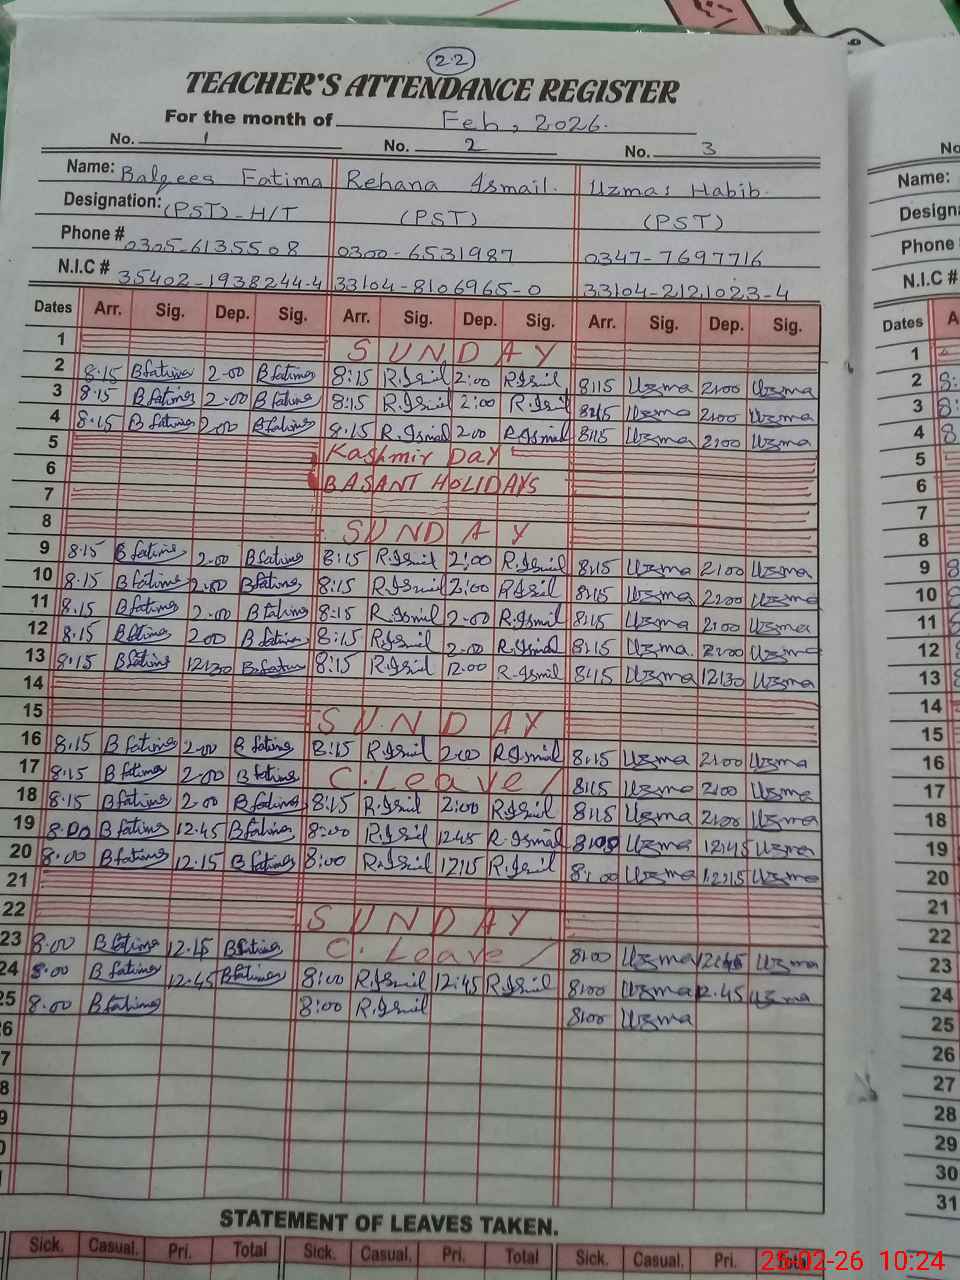 2.2
TEACHER'S ATTENDANCE REGISTER
For the month of Feb, 2026.
No. 1 No. 2 No. 3
Name: Balqees Fatima Rehana Ismail. Uzma Habib.
Designation: (PST)-H/T (PST) (PST)
Phone # 0305-6135508 0300-6531987 0347-7697716
N.I.C # 35402-1938244-4 33104-8106965-0 33104-2121023-4
Dates Arr. Sig. Dep. Sig. Arr. Sig. Dep. Sig. Arr. Sig. Dep. Sig.
1 SUNDAY
2 8:15 Bfatima 2-00 Bfatima 8:15 R.Ismil 2:00 R.Ismil 8:15 Uzma 2:00 Uzma
3 8:15 Bfatima 2-00 Bfatima 8:15 R.Ismil 2:00 R.Ismil 8:15 Uzma 2:00 Uzma
4 8:15 Bfatima 2-00 Bfatima 8:15 R.Ismil 2-00 R.Ismil 8:15 Uzma 2:00 Uzma
5 Kashmir Day
6 BASANT HOLIDAYS
7
8 SUNDAY
9 8.15 Bfatima 2-00 Bfatima 8:15 R.Ismil 2:00 R.Ismil 8:15 Uzma 2:00 Uzma
10 8.15 Bfatima 2-00 Bfatima 8:15 R.Ismil 2:00 R.Ismil 8:15 Uzma 2:00 Uzma
11 8.15 Bfatima 2-00 Bfatima 8:15 R.Ismil 2-00 R.Ismil 8:15 Uzma 2:00 Uzma
12 8.15 Bfatima 2-00 Bfatima 8:15 R.Ismil 2-00 R.Ismil 8:15 Uzma. 2:00 Uzma
13 8.15 Bfatima 12:30 Bfatima 8:15 R.Ismil 12.00 R.Ismil 8:15 Uzma 12:30 Uzma
14
15 SUNDAY
16 8.15 Bfatima 2-00 Bfatima 8:15 R.Ismil 2:00 R.Ismil 8:15 Uzma 2:00 Uzma
17 8.15 Bfatima 2-00 Bfatima C.Leave/ 8:15 Uzma 2:00 Uzma
18 8.15 Bfatima 2-00 Bfatima 8:15 R.Ismil 2:00 R.Ismil 8:15 Uzma 2:00 Uzma
19 8:00 Bfatima 12.45 Bfatima 8:00 R.Ismil 12:45 R.Ismil Uzma 12:45 Uzma
20 8:00 Bfatima 12.15 Bfatima 8:00 R.Ismil 12:15 R.Ismil 8:00 Uzma 12:15 Uzma
21
22 SUNDAY
23 8.00 Bfatima 12.15 Bfatima C. Leave/ 8:00 Uzma Uzma
24 8.00 Bfatima 12.45 Bfatima 8:00 R.Ismil 12:45 R.Ismil 8:00 Uzma 12.45 Uzma
25 8.00 Bfatima 8:00 R.Ismil 8:00 Uzma
6
7
8
9
STATEMENT OF LEAVES TAKEN.
Sick. Casual. Pri. Total Sick. Casual. Pri. Total Sick. Casual. Pri. Total
No
Name:
Design
Phone
N.I.C #
Dates A
1
2 8
3 8
4 8
5
6
7
8
9 8
10 8
11 8
12 8
13 8
14
15
16
17
18
19
20
21
22
23
24
25
26
27
28
29
30
31
25-02-26 10:24